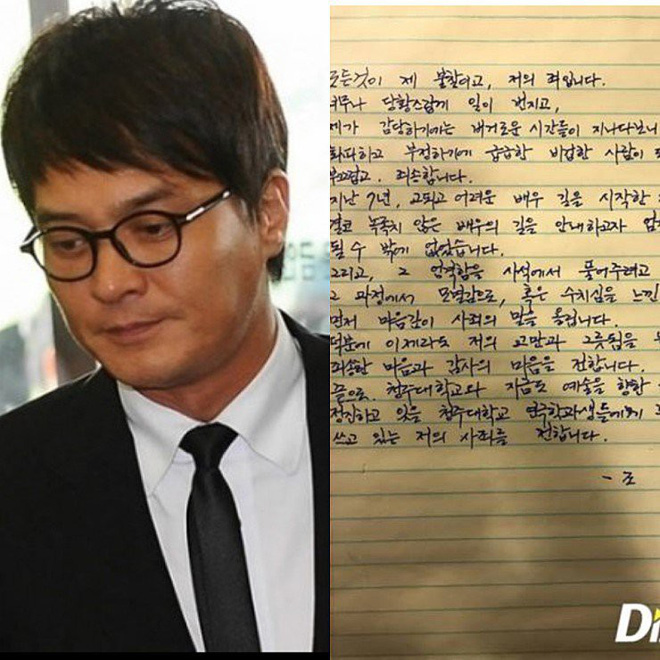 모든것이 제 불찰이고, 저의 죄입니다.
너무나 당황스럽게 일이 번지고,
제가 감당하기에는 버거로운 시간들이 지나다보니
회피하고 부정하기에 급급한 비겁한 사람이
부끄럽고, 죄송합니다.
지난 7년, 고되고 어려운 배우 길을 시작한
결코 녹록치 않은 배우의 길을 안내하고자
될 수 밖에 없었습니다.
그리고, 그 엄격함을 사석에서 풀어주려고
그 과정에서 모멸감으로, 혹은 수치심을 느낀
먼저 마음깊이 사죄의 말을 올립니다.
덕분에 이제라도 저의 교만과 그릇됨을
죄송한 마음과 감사의 마음을 전합니다.
끝으로, 청주대학교와 지금도 예술을 향한
정진하고 있을 청주대학교 연극학과생들에게
쓰고 있는 저의 사죄를 전합니다.
- 조
Di